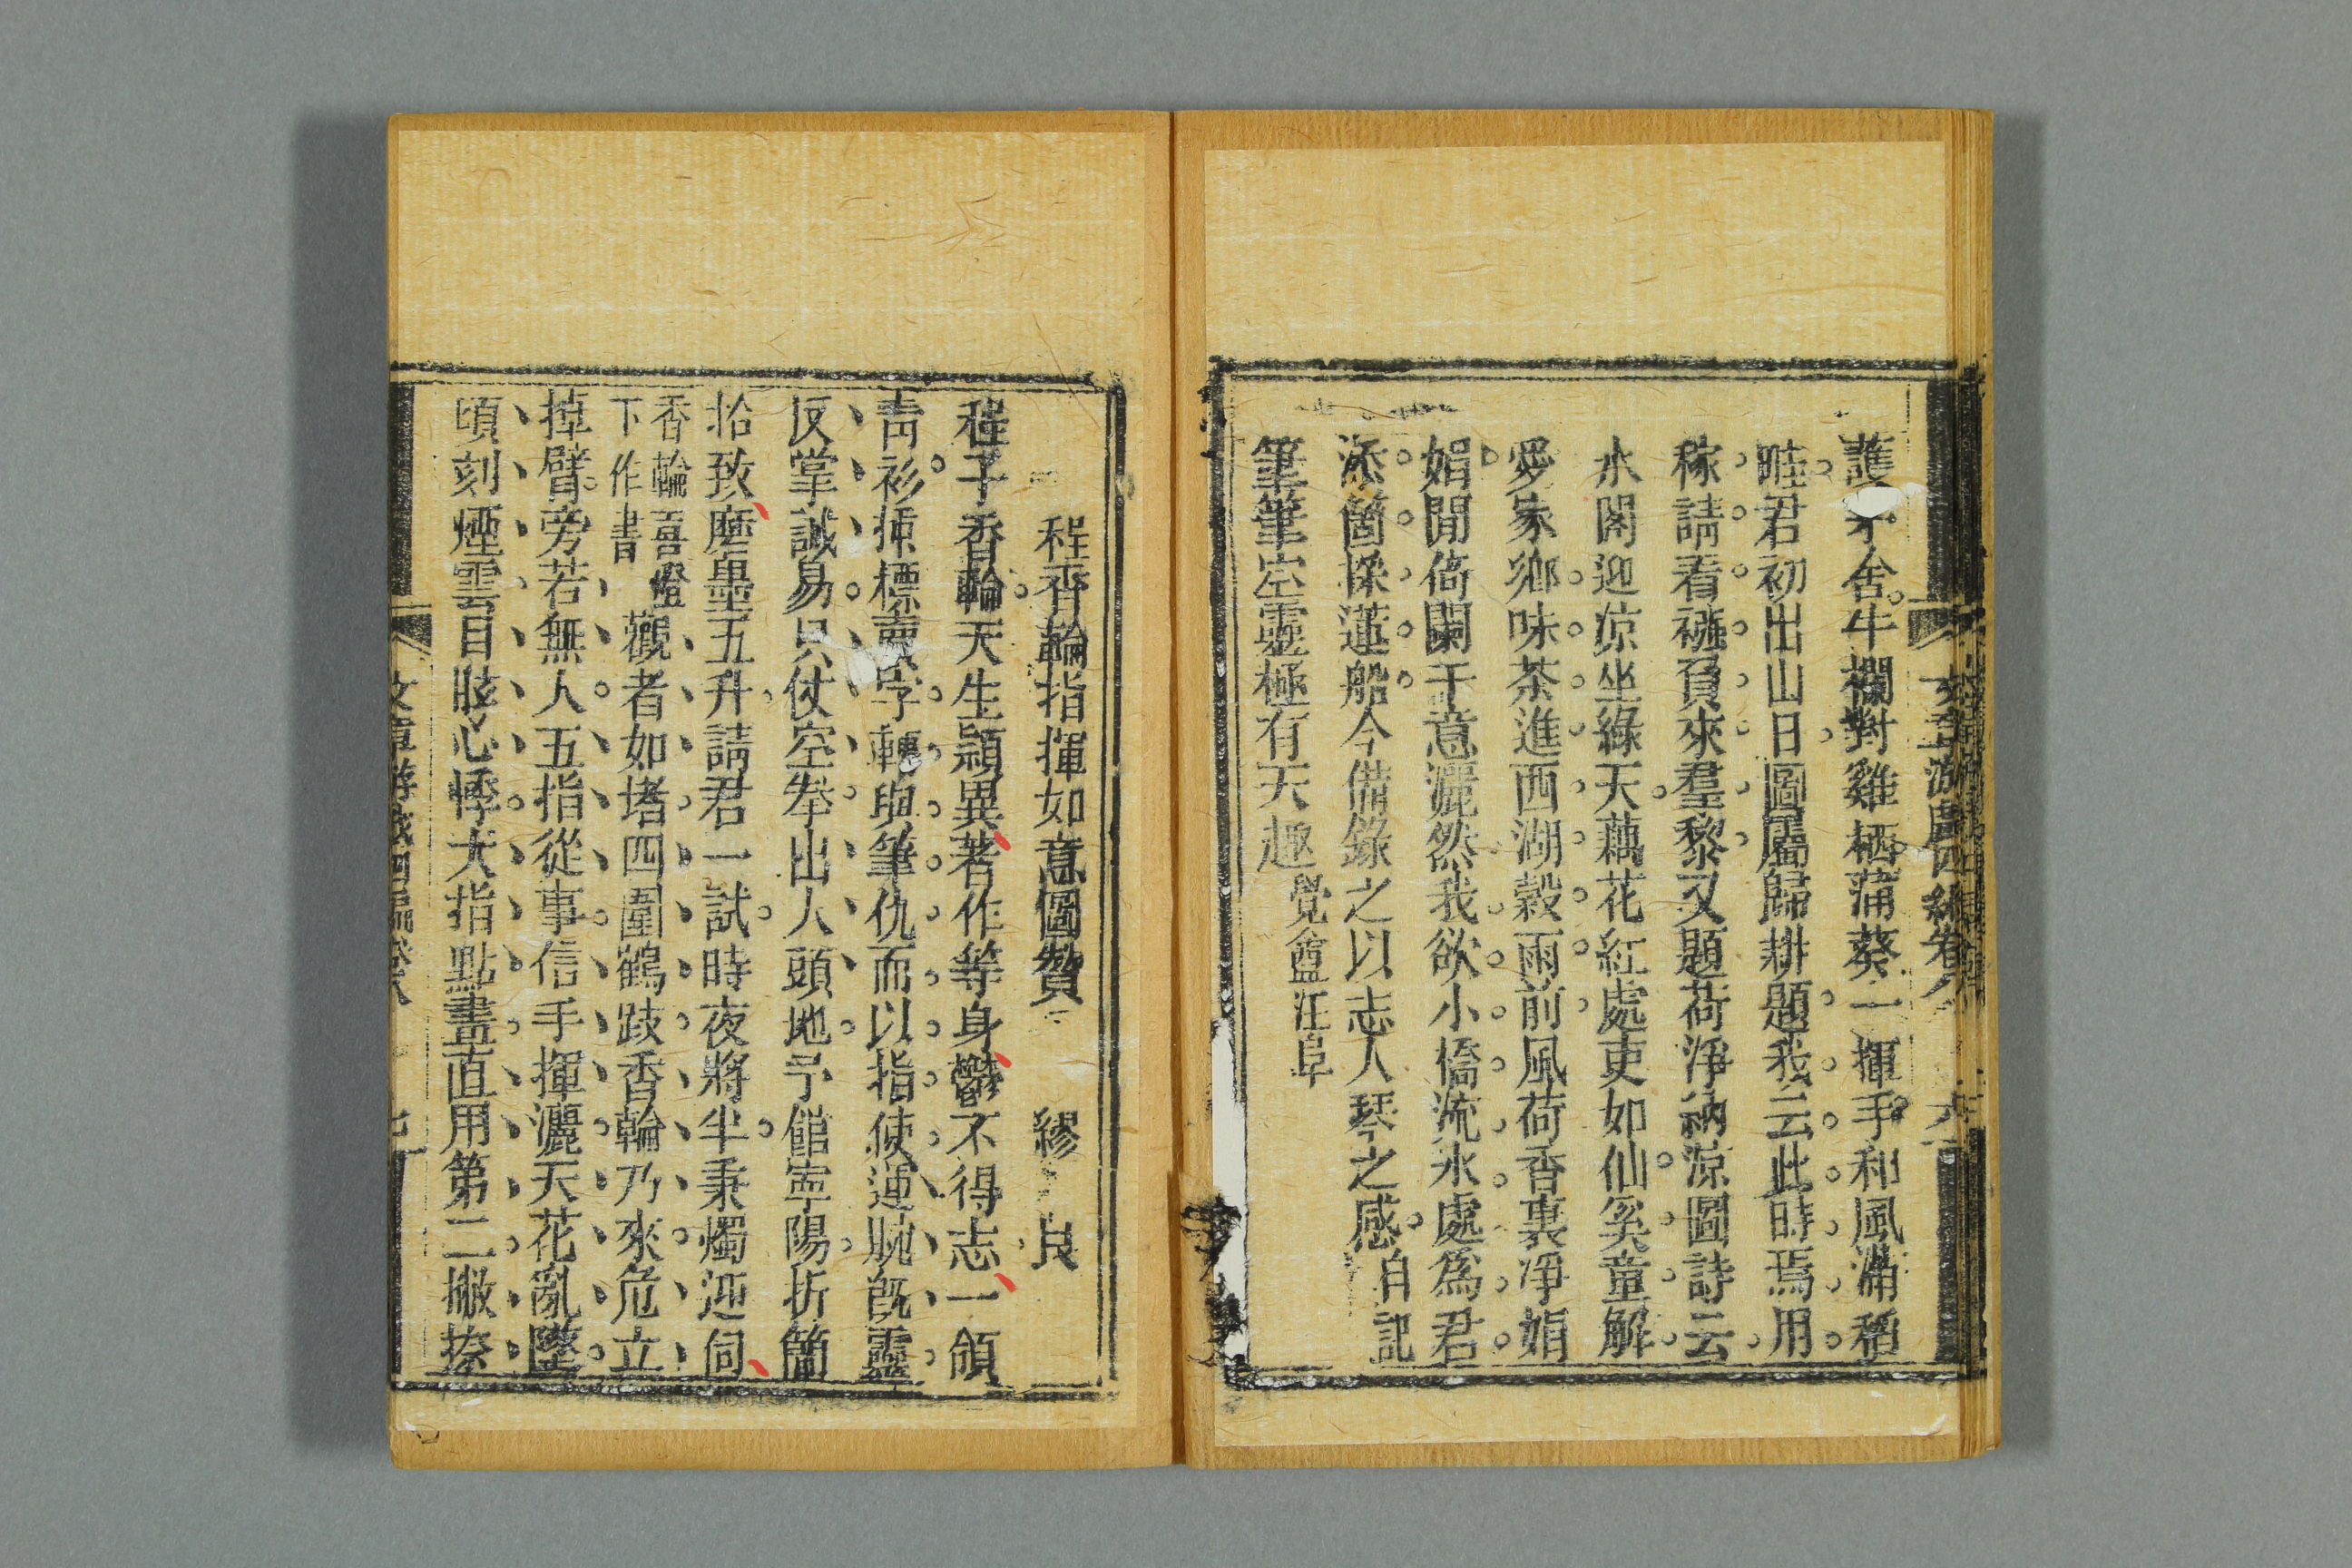 護茅舍牛欄對雞栖蒲葵一揮手和風滿稻
畦君初出山日圖屬歸耕題我云此時焉用
稼請看襁負來羣黎又題荷淨納涼圖詩云
水閣迎涼坐綠天藕花紅處吏如仙奚童解
愛家鄉味茶進西湖穀雨前風荷香裏凈娟
娟閒倚闌干意灑然我欲小橋流水處為君
添箇採蓮船今備錄之以志人琴之感自記
筆筆空靈極有天趣覺盦汪阜
程香輪指揮如意圖贊 繆艮
程子香輪天生穎異著作等身鬱不得志一領
青衫插標賣字輒與筆仇而以指使運腕旣靈
反掌誠易只仗空拳出人頭地予館寧陽折簡
招致磨墨五升請君一試時夜將半秉燭迎伺
香輪喜燈下作書觀者如堵四圍鶴跂香輪乃來危立
掉臂旁若無人五指從事信手揮灑天花亂墜
頃刻煙雲目眩心悸大指點畫直用第二撇捺
文章游戲四編卷八 七